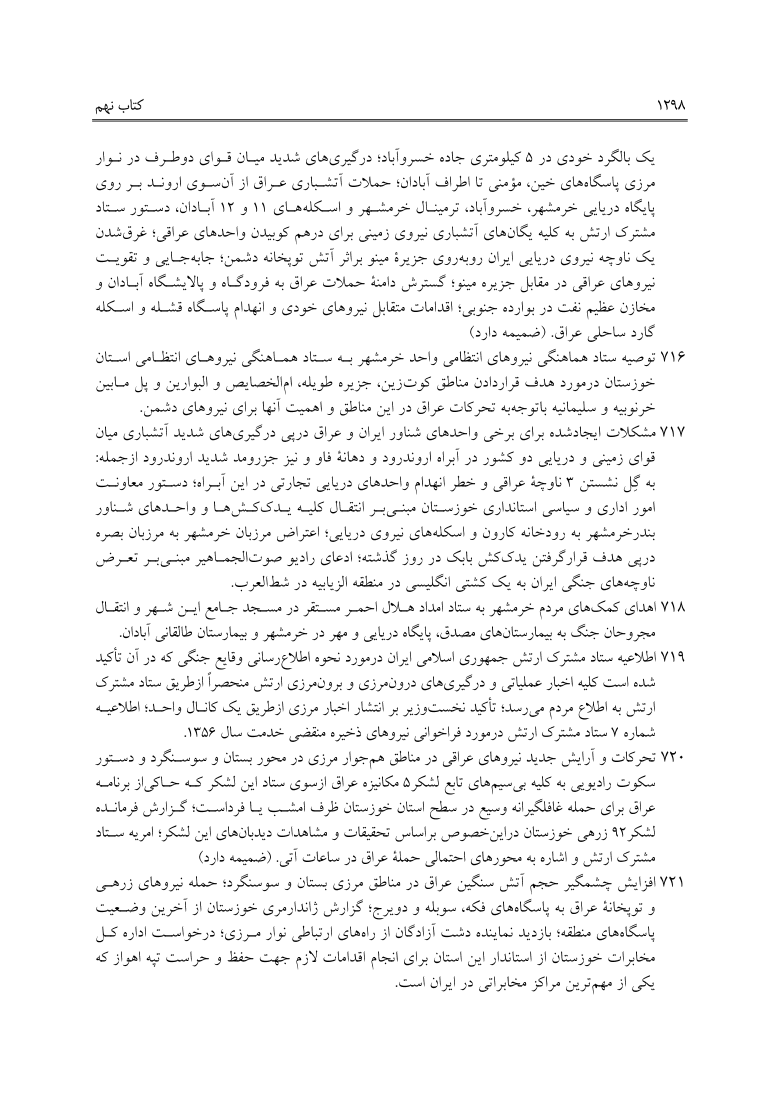 ۱۲۹۸ کتاب نهم
یک بالگرد خودی در ۵ کیلومتری جاده خسروآباد؛ درگیری‌های شدید میـان قـوای دوطـرف در نـوار
مرزی پاسگاه‌های خین، مؤمنی تا اطراف آبادان؛ حملات آتشـباری عـراق از آن‌سـوی ارونـد بـر روی
پایگاه دریایی خرمشهر، خسروآباد، ترمینـال خرمشـهر و اسـکله‌هـای ۱۱ و ۱۲ آبـادان، دسـتور سـتاد
مشترک ارتش به کلیه یگان‌های آتشباری نیروی زمینی برای درهم کوبیدن واحدهای عراقی؛ غرق‌شدن
یک ناوچه نیروی دریایی ایران روبه‌روی جزیرهٔ مینو براثر آتش توپخانه دشمن؛ جابه‌جـایی و تقویـت
نیروهای عراقی در مقابل جزیره مینو؛ گسترش دامنهٔ حملات عراق به فرودگـاه و پالایشـگاه آبـادان و
مخازن عظیم نفت در بوارده جنوبی؛ اقدامات متقابل نیروهای خودی و انهدام پاسـگاه قشـله و اسـکله
گارد ساحلی عراق. (ضمیمه دارد)
۷۱۶ توصیه ستاد هماهنگی نیروهای انتظامی واحد خرمشهر بـه سـتاد همـاهنگی نیروهـای انتظـامی اسـتان
خوزستان درمورد هدف قراردادن مناطق کوت‌زین، جزیره طویله، ام‌الخصایص و البوارین و پل مـابین
خرنوبیه و سلیمانیه باتوجه‌به تحرکات عراق در این مناطق و اهمیت آنها برای نیروهای دشمن.
۷۱۷ مشکلات ایجادشده برای برخی واحدهای شناور ایران و عراق درپی درگیری‌های شدید آتشباری میان
قوای زمینی و دریایی دو کشور در آبراه اروندرود و دهانهٔ فاو و نیز جزرومد شدید اروندرود ازجمله:
به گِل نشستن ۳ ناوچهٔ عراقی و خطر انهدام واحدهای دریایی تجارتی در این آبـراه؛ دسـتور معاونـت
امور اداری و سیاسی استانداری خوزسـتان مبنـی‌بـر انتقـال کلیـه یـدک‌کـش‌هـا و واحـدهای شـناور
بندرخرمشهر به رودخانه کارون و اسکله‌های نیروی دریایی؛ اعتراض مرزبان خرمشهر به مرزبان بصره
درپی هدف قرارگرفتن یدک‌کش بابک در روز گذشته؛ ادعای رادیو صوت‌الجمـاهیر مبنـی‌بـر تعـرض
ناوچه‌های جنگی ایران به یک کشتی انگلیسی در منطقه الزیابیه در شط‌العرب.
۷۱۸ اهدای کمک‌های مردم خرمشهر به ستاد امداد هـلال احمـر مسـتقر در مسـجد جـامع ایـن شـهر و انتقـال
مجروحان جنگ به بیمارستان‌های مصدق، پایگاه دریایی و مهر در خرمشهر و بیمارستان طالقانی آبادان.
۷۱۹ اطلاعیه ستاد مشترک ارتش جمهوری اسلامی ایران درمورد نحوه اطلاع‌رسانی وقایع جنگی که در آن تأکید
شده است کلیه اخبار عملیاتی و درگیری‌های درون‌مرزی و برون‌مرزی ارتش منحصراً ازطریق ستاد مشترک
ارتش به اطلاع مردم می‌رسد؛ تأکید نخست‌وزیر بر انتشار اخبار مرزی ازطریق یک کانـال واحـد؛ اطلاعیـه
شماره ۷ ستاد مشترک ارتش درمورد فراخوانی نیروهای ذخیره منقضی خدمت سال ۱۳۵۶.
۷۲۰ تحرکات و آرایش جدید نیروهای عراقی در مناطق هم‌جوار مرزی در محور بستان و سوسـنگرد و دسـتور
سکوت رادیویی به کلیه بی‌سیم‌های تابع لشکر۵ مکانیزه عراق ازسوی ستاد این لشکر کـه حـاکی‌از برنامـه
عراق برای حمله غافلگیرانه وسیع در سطح استان خوزستان ظرف امشـب یـا فرداسـت؛ گـزارش فرمانـده
لشکر۹۲ زرهی خوزستان دراین‌خصوص براساس تحقیقات و مشاهدات دیدبان‌های این لشکر؛ امریه سـتاد
مشترک ارتش و اشاره به محورهای احتمالی حملهٔ عراق در ساعات آتی. (ضمیمه دارد)
۷۲۱ افزایش چشمگیر حجم آتش سنگین عراق در مناطق مرزی بستان و سوسنگرد؛ حمله نیروهای زرهـی
و توپخانهٔ عراق به پاسگاه‌های فکه، سوبله و دویرج؛ گزارش ژاندارمری خوزستان از آخرین وضـعیت
پاسگاه‌های منطقه؛ بازدید نماینده دشت آزادگان از راه‌های ارتباطی نوار مـرزی؛ درخواسـت اداره کـل
مخابرات خوزستان از استاندار این استان برای انجام اقدامات لازم جهت حفظ و حراست تپه اهواز که
یکی از مهم‌ترین مراکز مخابراتی در ایران است.